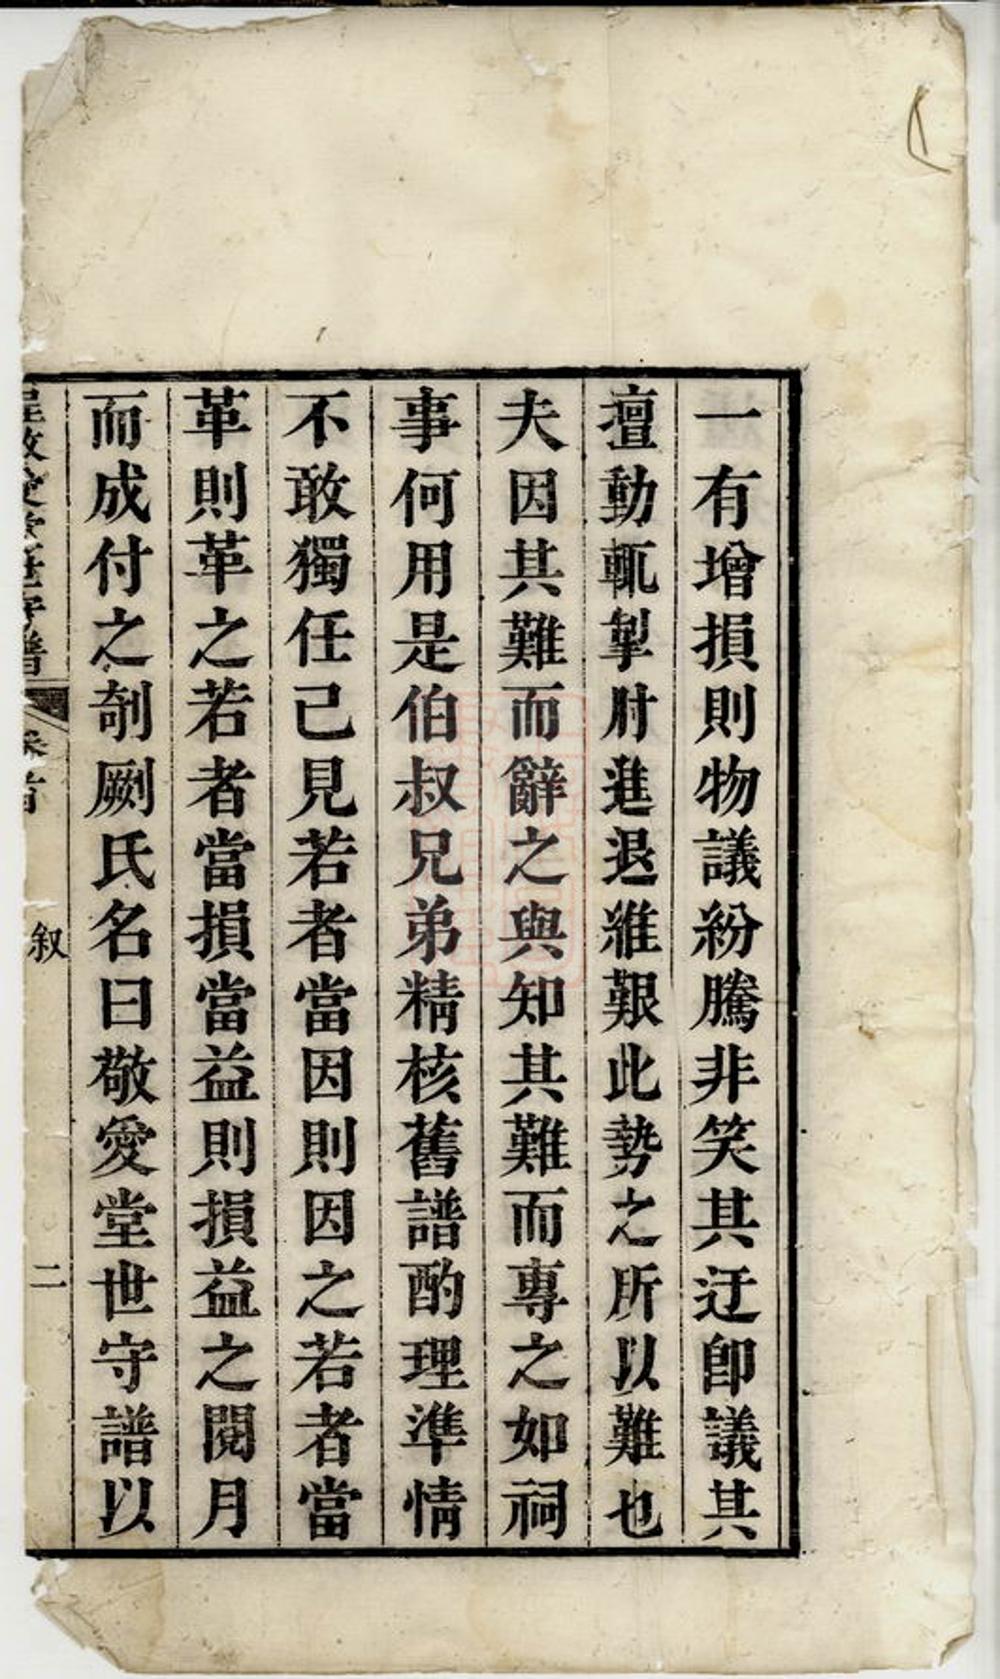 一有增損則物議紛騰非笑其迂卽議其
擅動輒掣肘進退維艱此勢之所以難也
夫因其難而辭之與知其難而專之如祠
事何用是伯叔兄弟精核舊譜酌理準情
不敢獨任己見若者當因則因之若者當
革則革之若者當損當益則損益之閱月
而成付之剞劂氏名曰敬愛堂世守譜以
敬愛堂世守譜 卷首 叙 二